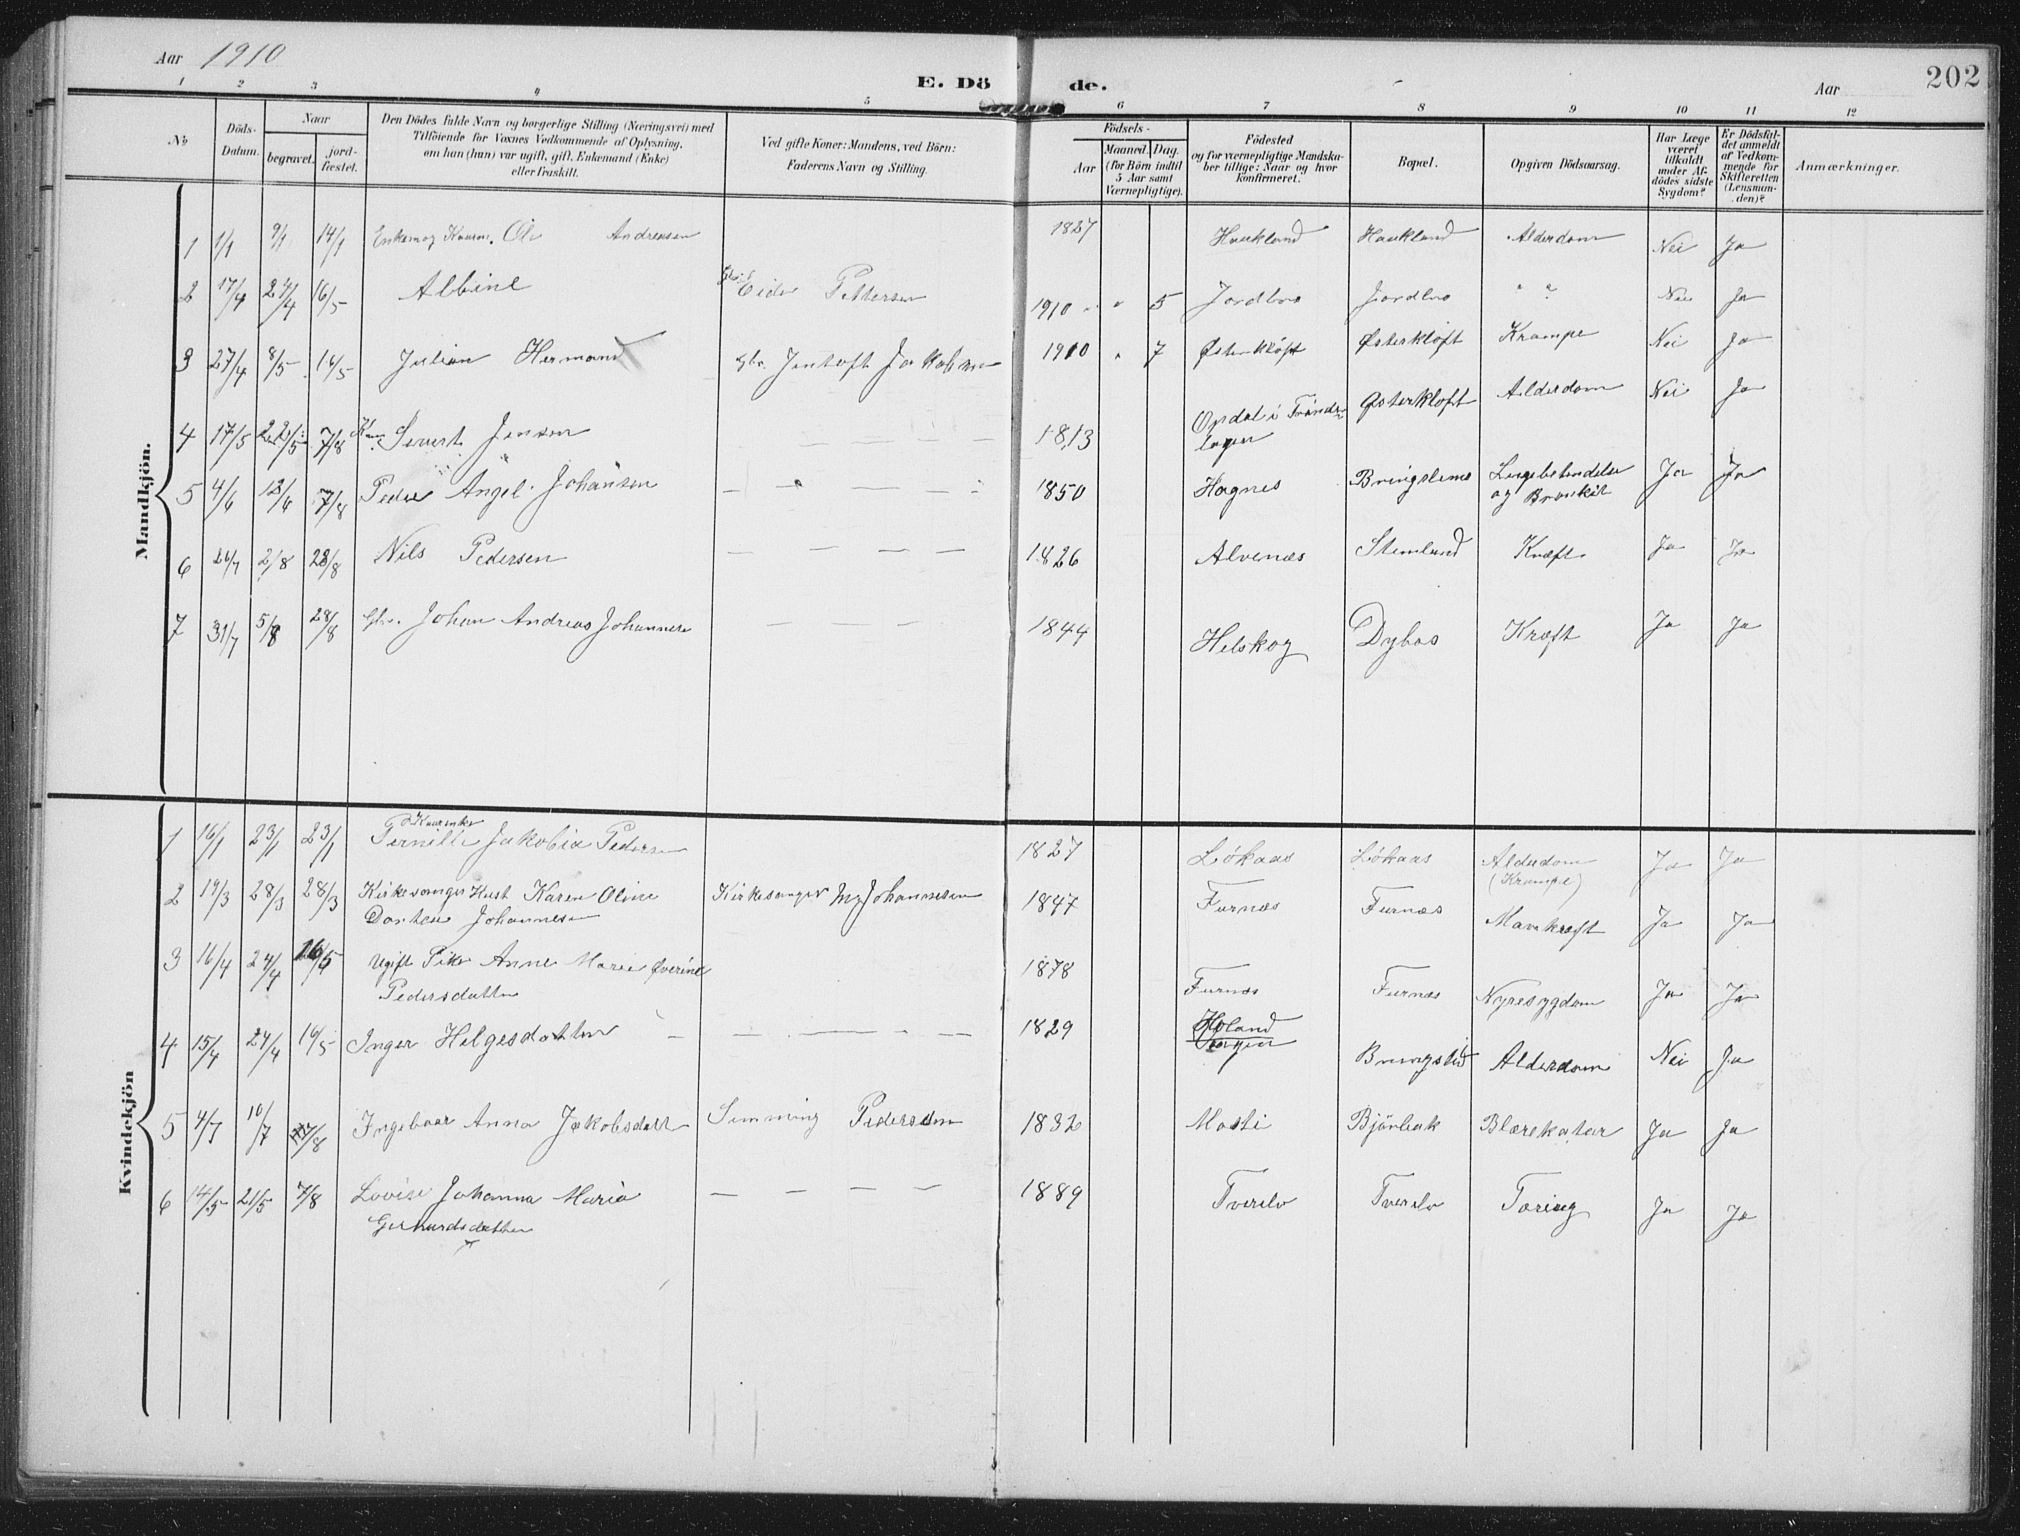 Aar 1910
E. Döde.
Aar
202
1 2 3 4 5 6 7 8 9 10 11 12
No
Döds-Datum.
Naar
begravet. jord-fæstet.
Den Dödes fulde Navn og borgerlige Stilling (Næringsvei) med
Tilföiende for Voxnes Vedkommende af Oplysning,
om han (hun) var ugift, gift, Enkemand (Enke)
eller fraskilt.
Ved gifte Koner: Mandens, ved Börn:
Faderens Navn og Stilling.
Födsels-
Aar
Maaned. Dag.
(for Börn indtil
5 Aar samt
Værnepligtige).
Födested
og for værnepligtige Mandska-
ber tillige: Naar og hvor
konfirmeret.
Bopæl.
Opgiven Dödsaarsag.
Har Læge
været
tilkaldt
under Af-
dödes sidste
Sygdom?
Er Dödsfal-
det anmeldt
af Vedkom-
mende for
Skifteretten
(Lensman-
den)?
Anmærkninger.
Mandkjön.
1 1/1 9/1 14/1 Andreasen 1827 Haukland Haukland Alderdom Nei Ja
2 17/4 24/4 16/5 Albine Pettersen 1910 " 5 Jordbro Jordbro " " Nei Ja
3 27/4 8/5 16/5 Julian Hermand Gbr. Jentoft Jakobsen 1910 " 7 Østerkløft Østerkløft Krampe Nei Ja
4 17/5 22/5 7/8 Sivert Jensen — — — — 1813 Opdal i Trönde-
lagen Østerkløft Alderdom Nei Ja
5 4/6 12/6 7/8 Peder Angel Johansen — — — — 1850 Hagnes Lungebetændelse
og Bronkit Ja Ja
6 26/7 2/8 28/8 Nils Pedersen — — — — 1826 Alvenæs Stemland Kræft Ja Ja
7 31/7 5/8 28/8 Gbr. Johan Andreas Johannesen — — — 1844 Helskog Dybos Kræft Ja Ja
Kvindekjön
1 16/1 23/1 23/1 Pernille Jakobia Pedersen 1827 Lökaas Lökaas Alderdom
(Krampe) Ja Ja
2 19/3 28/3 28/3 Kirkesanger Hust Karen Oline
Dorthea Johannesen Kirkesanger Johannesen 1847 Furnæs Furnæs Mavekræft Ja Ja
3 16/4 24/4 16/5 Ugift Pike Anne Marie Overine
Pedersdatter 1878 Furnæs Furnæs Nyresygdom Ja Ja
4 15/4 24/4 16/5 Inger Helgesdatter — — — — 1829 Bringslid Alderdom Nei Ja
5 4/7 10/7 7/8 Ingebaar Anna Jakobsdatt Simming Pedersen 1832 Mosti Bjönbak Blærekatar Ja Ja
6 14/5 21/5 7/8 Lovise Johanna Maria
Gerhardsdatter — — — — 1889 Tverelv Tverelv Tæring Ja Ja